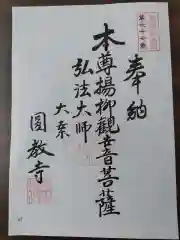 奉納
第六十六番
本尊楊柳觀世音菩薩
弘法大師
大乗
圓教寺